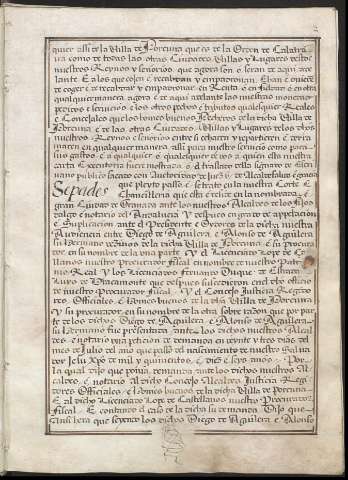 quier assi de la Villa de Porcuna que es de la Orden de Calatra
ua como de todas las otras Ciudades Villas y Lugares destos
nuestros Reynos y señorios que agora son o seran de aqui ade
lante E a los que cojen E recabdan y empadronan E han E ouiere
de coger E de recabdar y empadronar en Renta o en fieldad o en otra
qualquier manera agora E de aqui adelante las nuestras monedas
pedidos E seruicios E los otros pedidos E tributos qualesquier Reales
E Concejales que los honbres buenos Pecheros de la dicha Villa de
Porcuna E de las otras Ciudades Villas y Lugares destos dhos
nuestros Reynos E señorios entre si echaren y repartieren E derra
maren en qualquier manera assi para nuestro seruicio como para
sus gastos E a qualquier o qualesquier de vos a quien esta nuestra
carta Executoria fuere mostrada o el traslado della signado de Escriuano
publico sacado con Autoridad de Juez o de Alcalde Salud E gracia
Sepades que pleyto passo E se trato en la nuestra Corte E
Chancilleria que esta E reside en la nombrada E
gran Ciudad de Granada ante los nuestros Alcaldes de los Hijos
dalgo E notario del Andaluzia Y despues en grado de apelacion
E Suplicacion ante el Presidente E Oydores de la dicha nuestra
Audiencia entre Diego de Aguilera E Alonso de Aguilera
su Hermano vezinos de la dicha Villa de Porcuna E su procura
dor en su nombre de la vna parte Y el Licenciado Lope de Cas
tellanos nuestro Procurador Fiscal en nombre de nuestro Patrimo
nio Real Y los Licenciados Fernando Duque de Estrada
de Bracamonte que despues subcedieron en el dho officio
de nuestro Procurador Fiscal Y el Concejo Justicia Regidores
Officiales E Honbres buenos de la dha Villa de Porcuna
Y su procurador en su nombre de la otra Sobre razon que por par
te de los dichos Diego de Aguilera E Alonso de Aguilera
su Hermano fue presentada ante los dichos nuestros Alcal
des E notario vna peticion de demanda en veynte y tres dias del
mes de Julio del año que passo del nascimiento de nuestro Salua
dor Jesu Xpo de mil y quinientos E diez E seys años Por
la qual dixo que ponia demanda ante los dichos nuestros Al
caldes E notario al dicho Concejo Alcaldes Justicia Regi
dores Officiales E Honbres buenos de la dicha Villa de Porcuna
E al dicho Licenciado Lope de Castellanos nuestro Procurador
Fiscal E contando el caso de la dicha su demanda Dixo que
ansi hera que seyendo los dichos Diego de Aguilera E Alonso